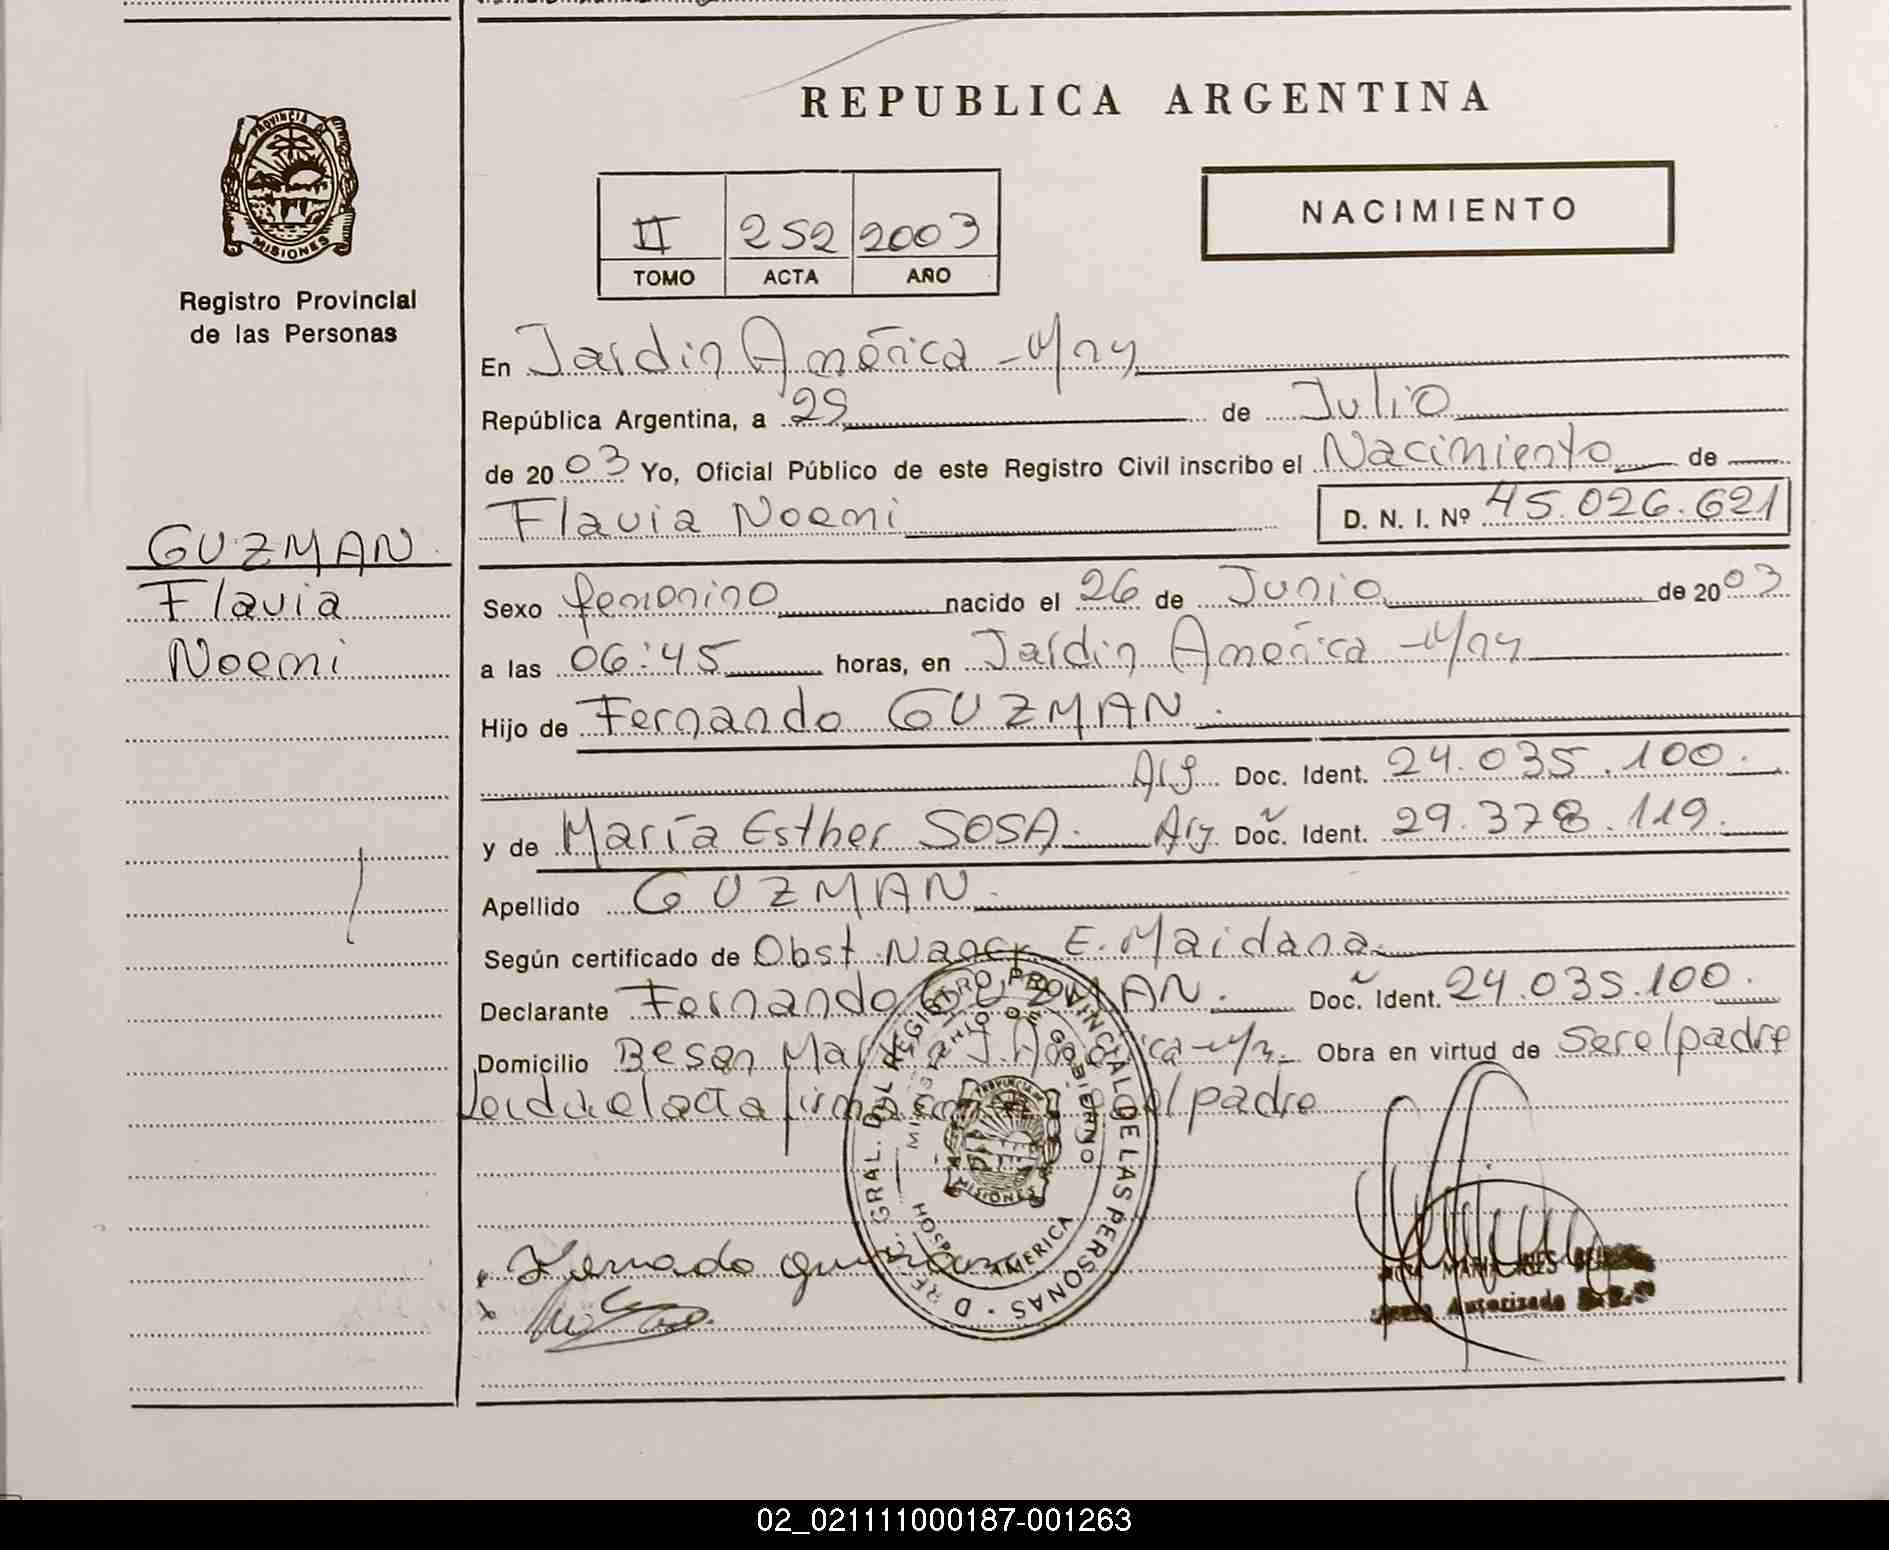 REPUBLICA ARGENTINA
PROVINCIA DE
MISIONES
Registro Provincial
de las Personas
II 252 2003
TOMO ACTA AÑO
NACIMIENTO
En Jardin América - Mny
República Argentina, a 29 de Julio
de 2003 Yo, Oficial Público de este Registro Civil inscribo el Nacimiento de
Flavia Noemi D. N. I. Nº 45.026.621
GUZMAN
Flavia
Noemi
Sexo femenino nacido el 26 de Junio de 2003
a las 06:45 horas, en Jardin América - Mny
Hijo de Fernando GUZMAN.
Arg Doc. Ident. 24.035.100.
y de María Esther SOSA. Arg. Doc. Ident. 29.378.119.
Apellido GUZMAN.
Según certificado de Obst. Nancy E. Maidana
Declarante Fernando GUZMAN. Doc. Ident. 24.035.100.
Domicilio J. América Obra en virtud de ser el padre
Leida el acta firma el padre
Fernando guzman
REGISTRO PROVINCIAL DE LAS PERSONAS
GRAL. DEL
MINISTERIO DE GOBIERNO
MISIONES
HOSP. AMERICA
Autorizada
02_021111000187-001263